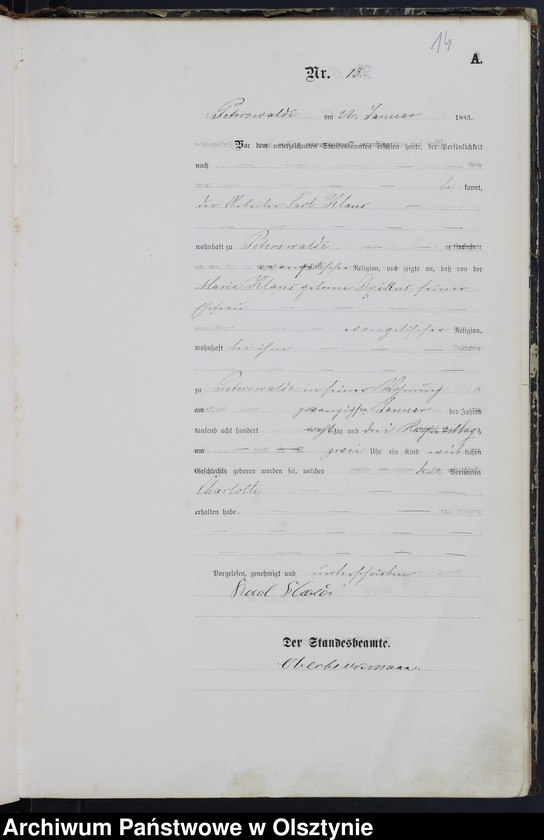 14
A.
Nr. 13.
Peterswalde am 22. Januar 1883.
Vor dem unterzeichneten Standesbeamten erschien heute, der Persönlichkeit
nach
be kannt,
der Arbeiter Carl Klaus
wohnhaft zu Peterswalde
evangelischer Religion, und zeigte an, daß von der
Marie Klaus geborene seiner
Ehefrau
evangelischer Religion,
wohnhaft bei ihm
zu Peterswalde in seiner Wohnung
am zwanzigsten Januar des Jahres
tausend acht hundert achtzig und drei Nachmittags
um zwei Uhr ein Kind weib lichen
Geschlechts geboren worden sei, welches den Vornamen
Charlotte
erhalten habe.
Vorgelesen, genehmigt und unterschrieben
Karl Klaus
Der Standesbeamte.
Archiwum Państwowe w Olsztynie